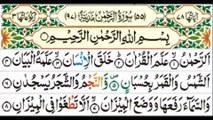 اٰيَاتُهَا ٧٨ (٥٥) سُوْرَةُ الرَّحْمٰنِ مَدَنِيَّةٌ (٩٧) رُكُوْعَاتُهَا ٣
بِسْمِ اللهِ الرَّحْمٰنِ الرَّحِيْمِ
اَلرَّحْمٰنُ ۝١ عَلَّمَ الْقُرْاٰنَ ۝٢ خَلَقَ الْاِنْسَانَ ۝٣ عَلَّمَهُ الْبَيَانَ ۝٤
اَلشَّمْسُ وَالْقَمَرُ بِحُسْبَانٍ ۝٥ وَّالنَّجْمُ وَالشَّجَرُ يَسْجُدٰنِ ۝٦
وَالسَّمَآءَ رَفَعَهَا وَوَضَعَ الْمِيْزَانَ ۝٧ اَلَّا تَطْغَوْا فِى الْمِيْزَانِ ۝٨